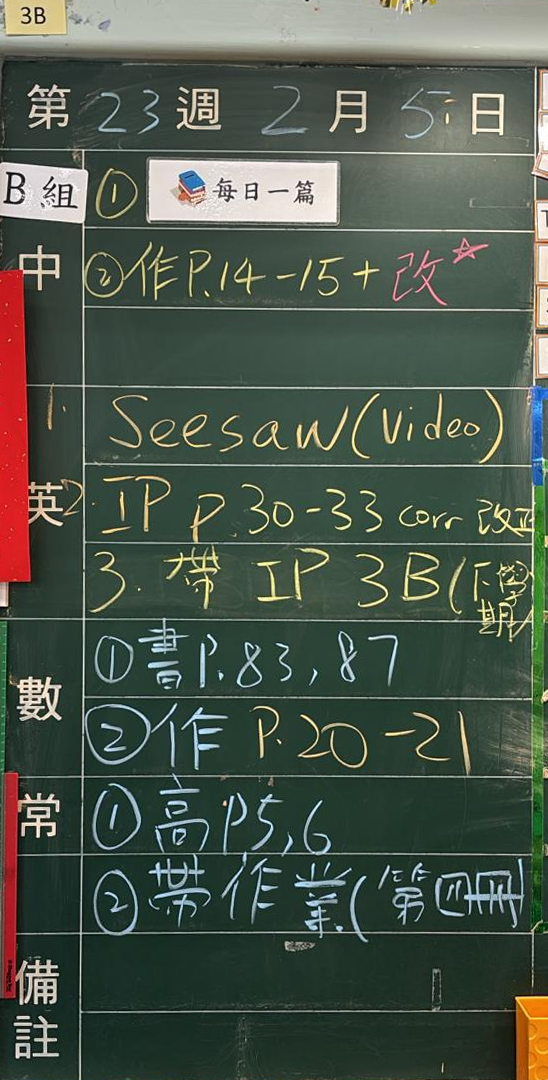 3B
第23週2月5日
B組 ① 每日一篇
中 ②作P.14-15+改☆
1. Seesaw(Video)
英 2. IP P.30-33 corr 改正
3. 帶 IP 3B(下學期)
數 ①書P.83,87
②作 P.20-21
常 ①高P5,6
②帶作業(第四冊)
備註